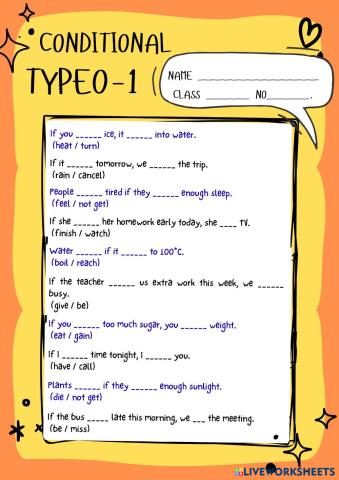 CONDITIONAL
TYPE0-1
NAME ____________________
CLASS _______ NO_______.
If you ______ ice, it ______ into water.
(heat / turn)
If it ______ tomorrow, we ______ the trip.
(rain / cancel)
People ______ tired if they ______ enough sleep.
(feel / not get)
If she ______ her homework early today, she ____ TV.
(finish / watch)
Water ______ if it ______ to 100°C.
(boil / reach)
If the teacher ______ us extra work this week, we ______
busy.
(give / be)
If you ______ too much sugar, you ______ weight.
(eat / gain)
If I ______ time tonight, I ______ you.
(have / call)
Plants ______ if they ______ enough sunlight.
(die / not get)
If the bus _____ late this morning, we ___ the meeting.
(be / miss)
LIVEWORKSHEETS